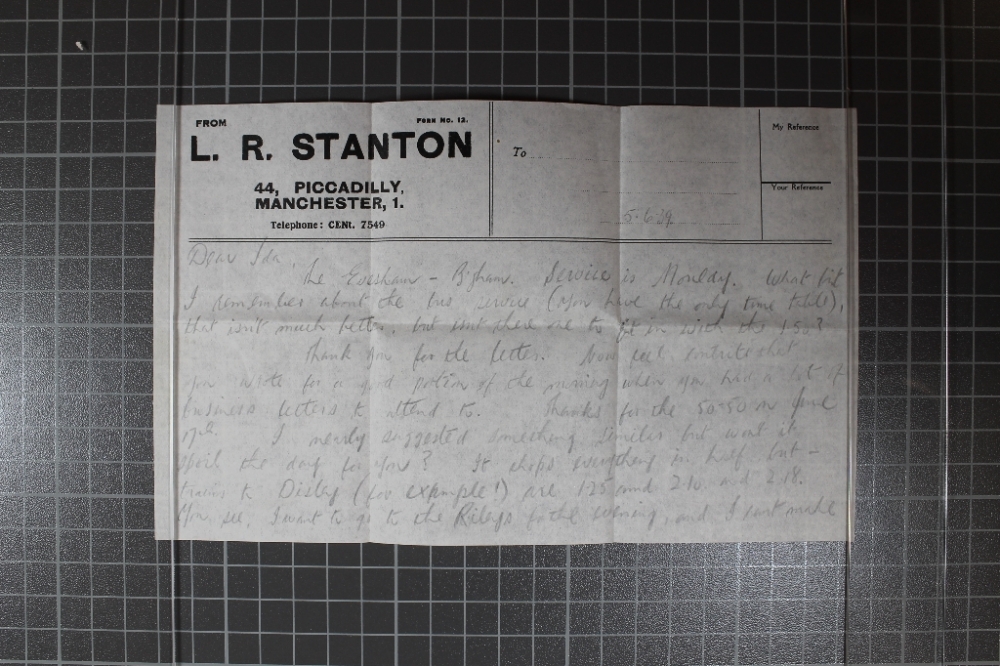 FROM
FORM NO. 12.
L. R. STANTON
44, PICCADILLY,
MANCHESTER, 1.
Telephone: CENt. 7549
To
My Reference
Your Reference
5-6-39
Dear Ida,
The Evesham - B'gham. Service is Monday. What bit
I remember about the bus service (you have the only time table),
that isn't much better, but isn't there one to fit in with the 1.50?
Thank you for the letter. Now feel contrite that
you wrote for a good portion of the morning when you had a lot of
business letters to attend to. Thanks for the 50-50 on June
17th. I nearly suggested something similar but won't it
spoil the day for you? It chops everything in half, but -
trains to Disley (for example!) are 1.25 and 2.10. and 2.18.
You see, I want to go to the Rileys for the evening, and I must make